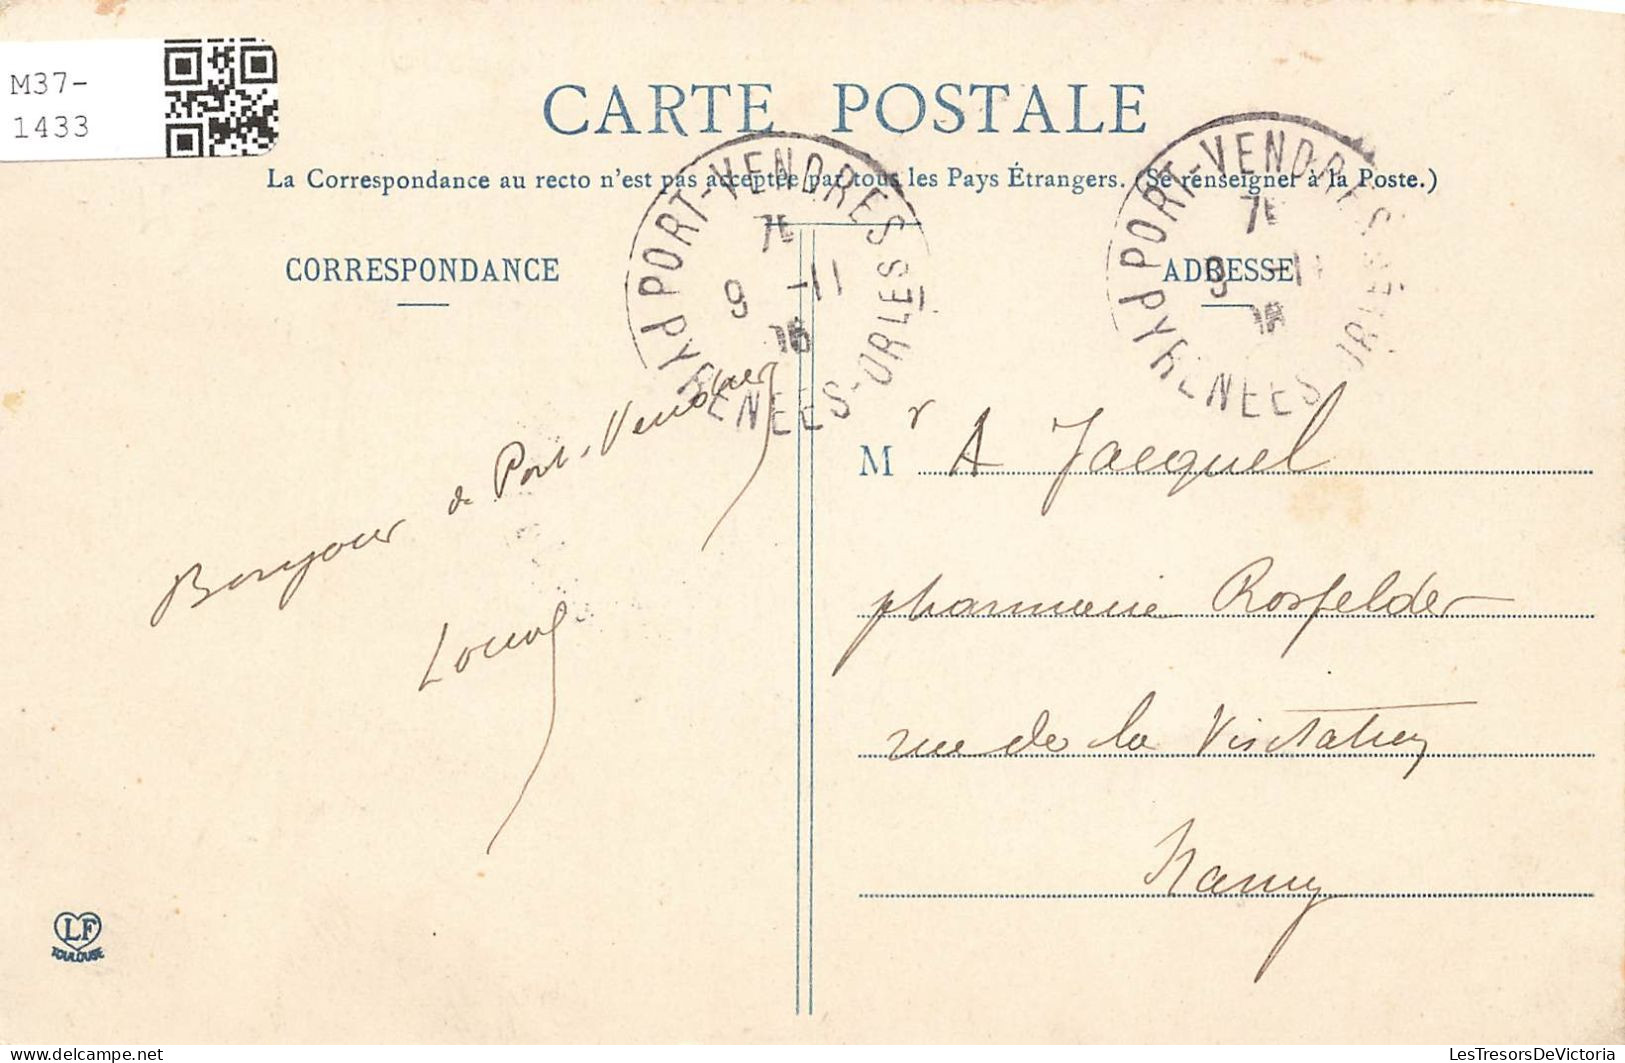 M37-
1433
CARTE POSTALE
La Correspondance au recto n'est pas acceptée par tous les Pays Étrangers. (Se renseigner à la Poste.)
CORRESPONDANCE
ADRESSE
PORT-VENDRES
9 -11
PYRENEES-ORLES
PORT-VENDRES
9 -11
PYRENEES-ORLES
Bonjour de Port-Vendres
Mr A Jacquel
pharmacie Rosfelder
rue de la Visitation
Nancy
LF
TOULOUSE
delcampe.net
LesTresorsDeVictoria